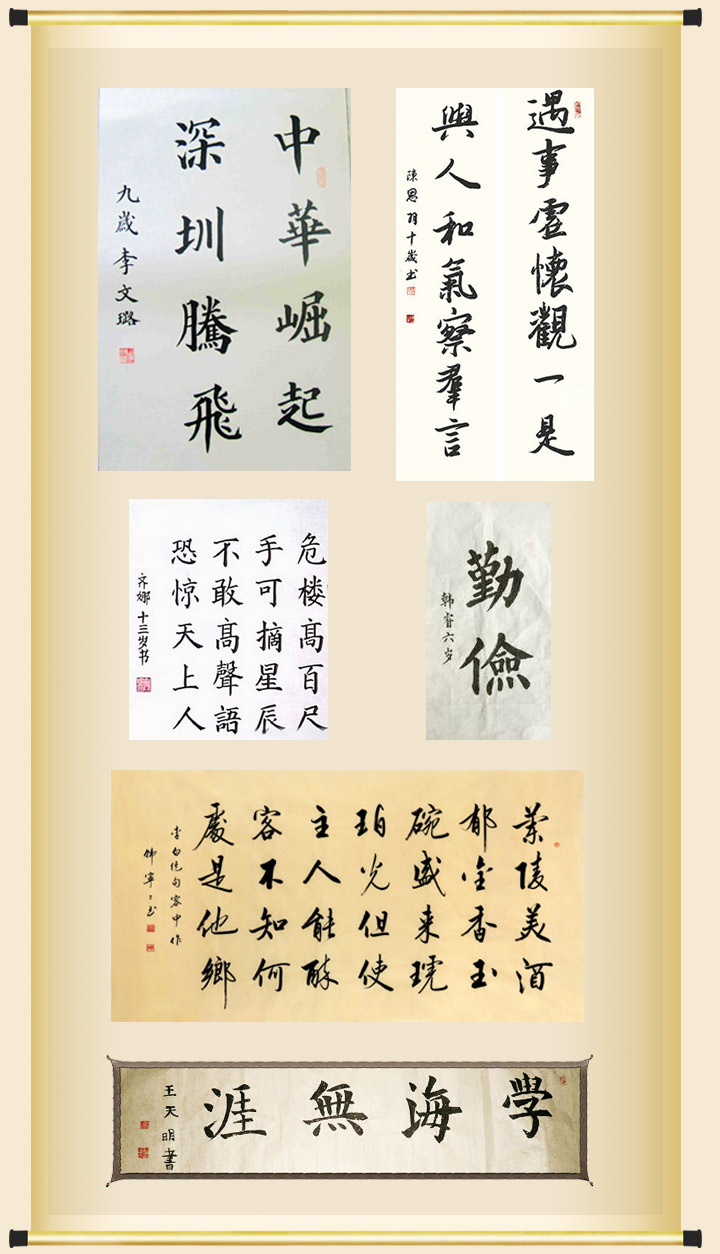 中華崛起
深圳騰飛
九歲李文璐
遇事虛懷觀一是
與人和氣察羣言
陳思羽十歲书
危楼高百尺
手可摘星辰
不敢高聲語
恐惊天上人
齐娜十三岁书
勤儉
韩睿六岁
蘭陵美酒
郁金香玉
碗盛来琥
珀光但使
主人能醉
客不知何
處是他鄉
李白绝句客中作
韩寧寧书
學海無涯
王天明書